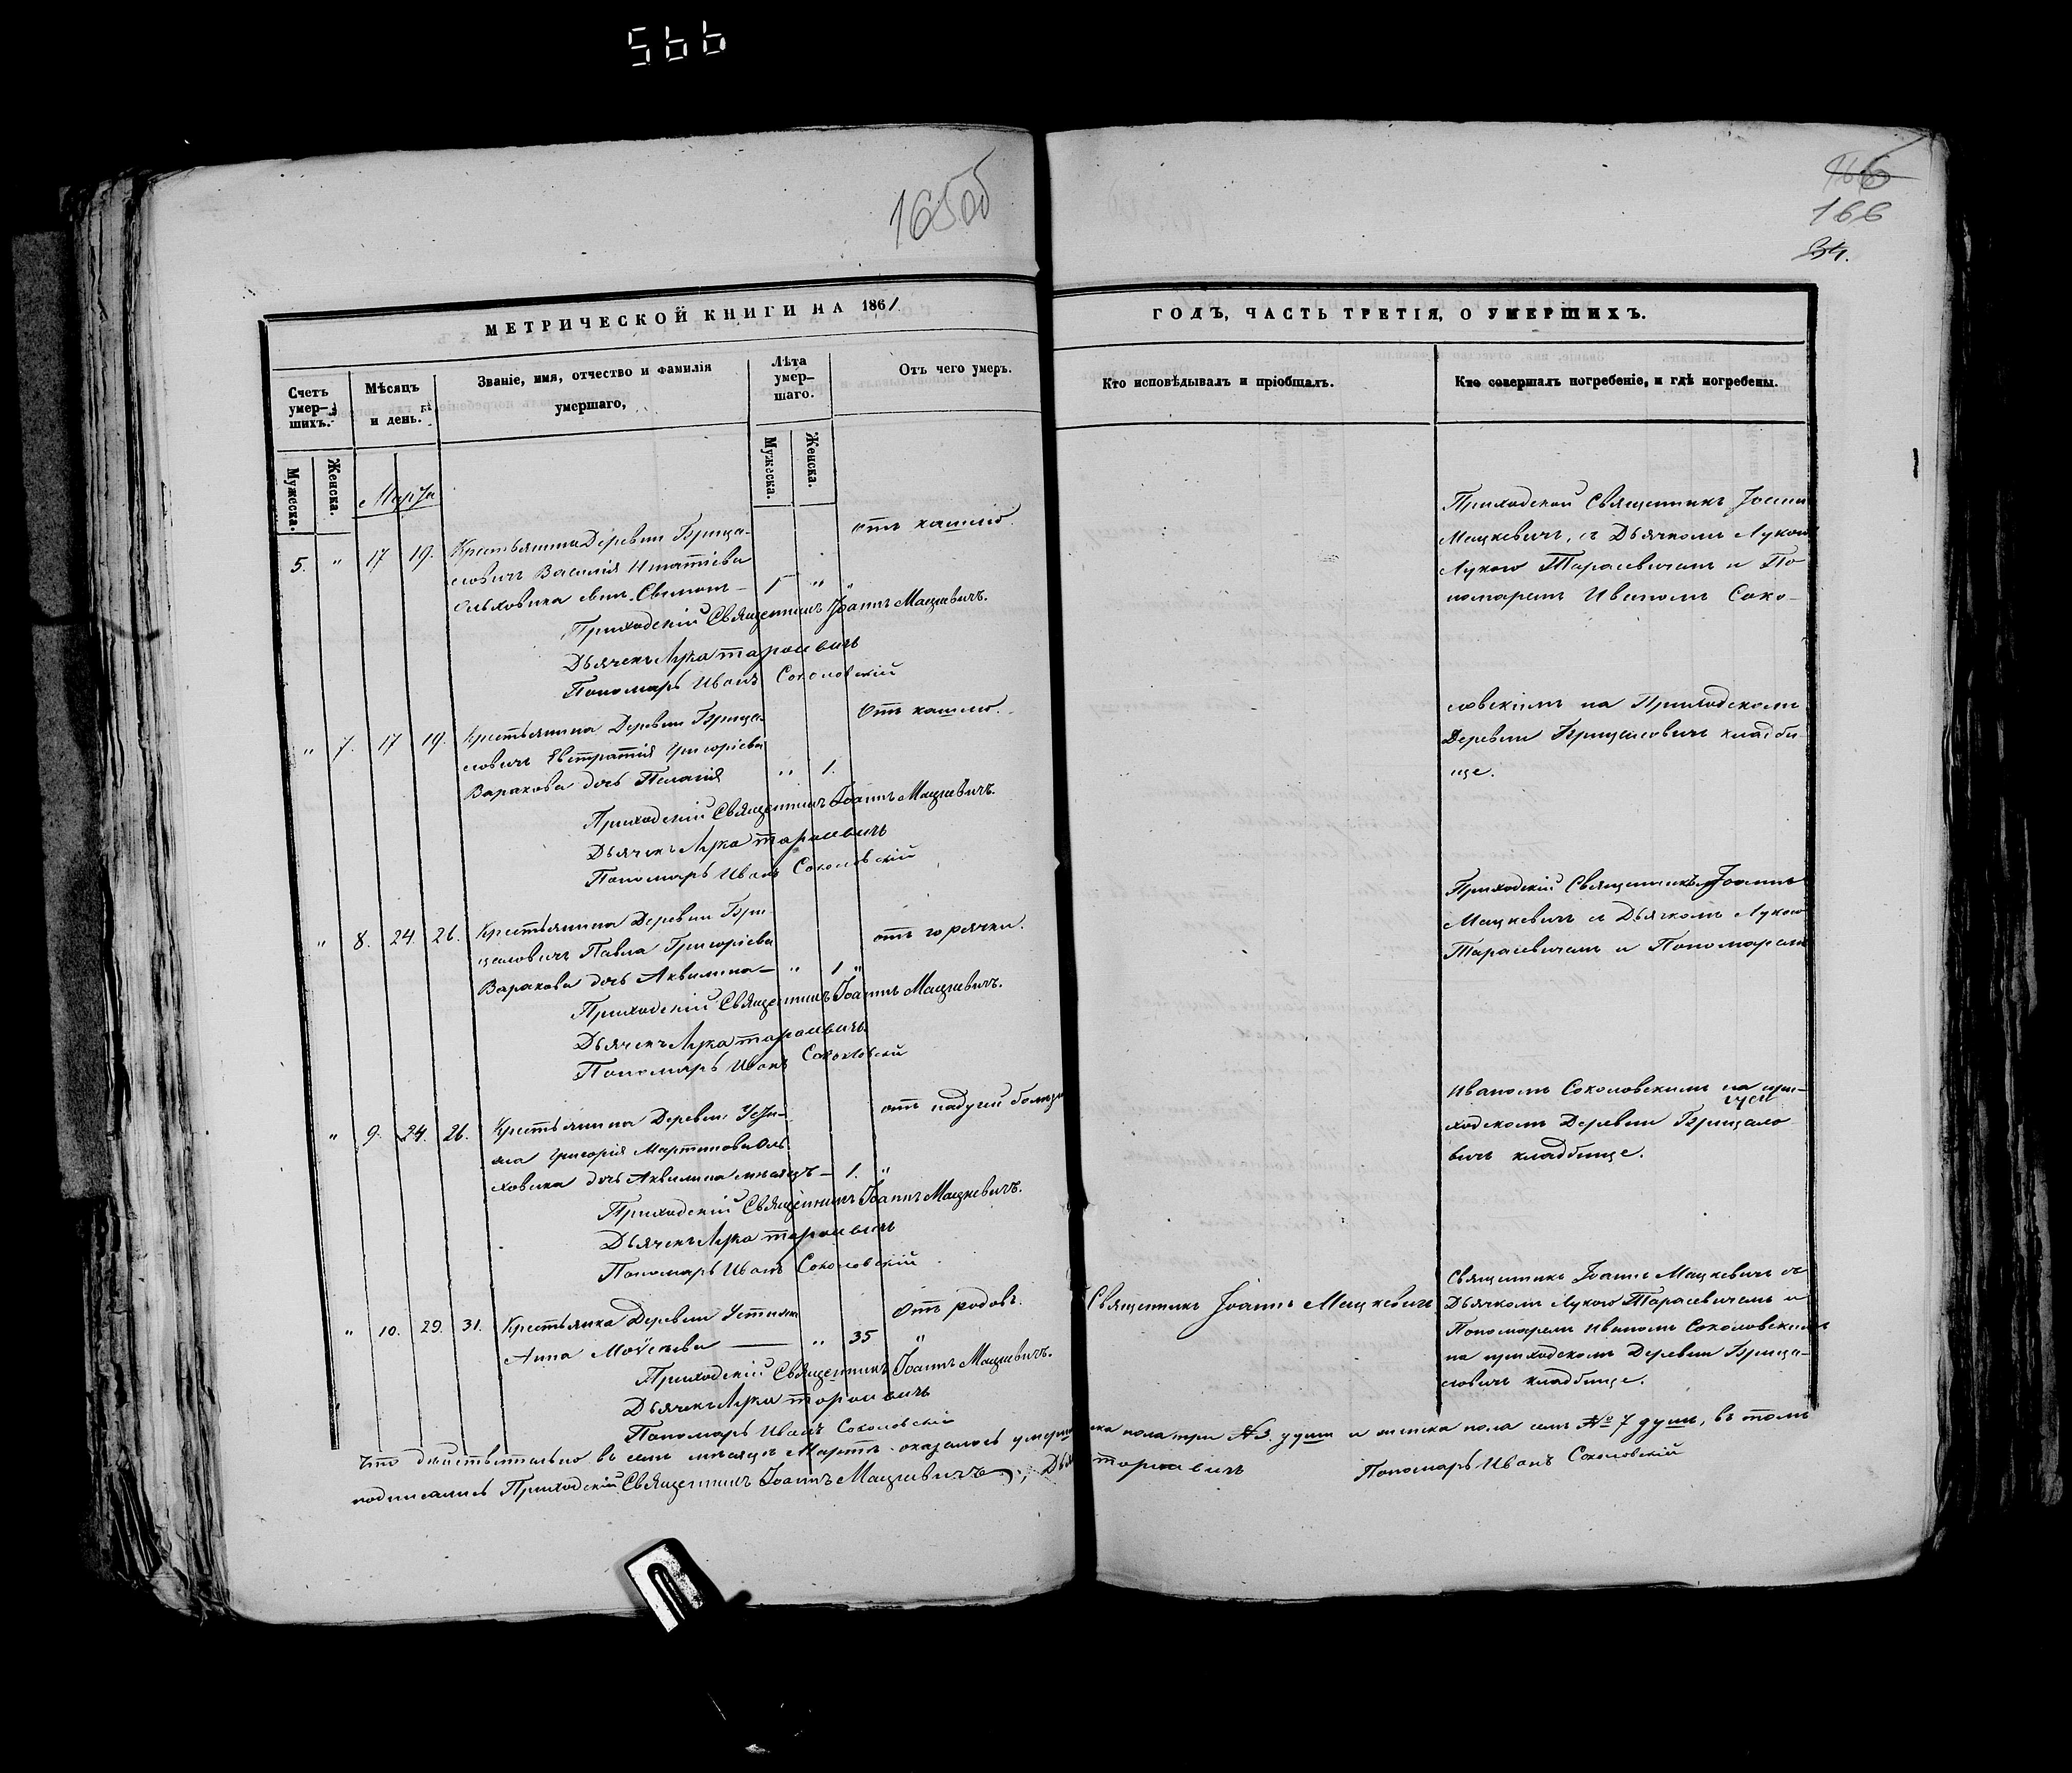 566
165об
166
166
34.
МЕТРИЧЕСКОЙ КНИГИ НА 1861
ГОДЪ, ЧАСТЬ ТРЕТІЯ, О УМЕРШИХЪ.
Счетъ умер-шихъ.
Мѣсяцъ и день.
Званіе, имя, отчество и фамилія умершаго,
Лѣта умер-шаго.
Отъ чего умеръ.
Кто исповѣдывалъ и пріобщалъ.
Кто совершалъ погребеніе, и гдѣ погребены.
Мужеска.
Женска.
Мужеска.
Женска.
Марта
5. " 17 19. Крестьянина Деревни Брица-
ловичъ Василія Игнатіева
Ольховика сынъ 1 "
отъ кашлю.
Приходскій Священникъ Іоаннъ Мацкевичъ.
Дьячекъ Лука Тарасевичъ
Пономарь Иванъ Соколовскій
Приходской Священникъ Іоаннъ
Мацкевичъ, съ Дьячкомъ Лукою
Лукою Тарасевичемъ и По
номаремъ Иваномъ Соко-
" 7. 17 19. Крестьянина Деревни Брица-
ловичъ Евстратія Григоріева
Варакова дочь Пелагія " 1.
отъ кашлю.
Приходскій Священникъ Іоаннъ Мацкевичъ.
Дьячекъ Лука Тарасевичъ
Пономарь Иванъ Соколовскій
ловскимъ на Приходскомъ
Деревни Брицаловичъ кладби-
ще.
" 8. 24. 26. Крестьянина Деревни Бри-
цаловичъ Павла Григоріева
Варакова дочь Аквилина — " 1 "
отъ горячки.
Приходскій Священникъ Іоаннъ Мацкевичъ.
Дьячекъ Лука Тарасевичъ.
Пономарь Иванъ Соколовскій
Приходскій Священникъ Іоаннъ
Мацкевичъ съ Дьячкомъ Лукою
Тарасевичемъ и Пономаремъ
" 9. 24. 26. Крестьянина Деревни Усти-
жа Григорія Мартинова Оль-
ховика дочь Аквилина мѣсяцъ — 1. "
отъ падучей
Приходскій Священникъ Іоаннъ Мацкевичъ.
Дьячекъ Лука Тарасевичъ
Пономарь Иванъ Соколовскій
Иваномъ Соколовскимъ на при-
ходскомъ Деревни Брицало
вичъ кладбище.
" 10. 29. 31. Крестьянка Деревни
Анна Моѵсеева — " 35 "
отъ родовъ.
Священникъ Іоаннъ Мацкевичъ
Приходскій Священникъ Іоаннъ Мацкевичъ.
Дьячекъ Лука Тарасевичъ
Пономарь Иванъ Соколовскій
Священникъ Іоаннъ Мацкевичъ съ
Дьячкомъ Лукою Тарасевичемъ и
Пономаремъ Иваномъ Соколовскимъ
на приходскомъ Деревни Брица-
ловичъ кладбище.
Что дѣйствительно въ семъ мѣсяцѣ Мартѣ оказалось ска пола три № 3. души и женска пола семь № 7 душъ, въ томъ
подписались Приходскій Священникъ Іоаннъ Мацкевичъ, Тарасевичъ Пономарь Иванъ Соколовскій